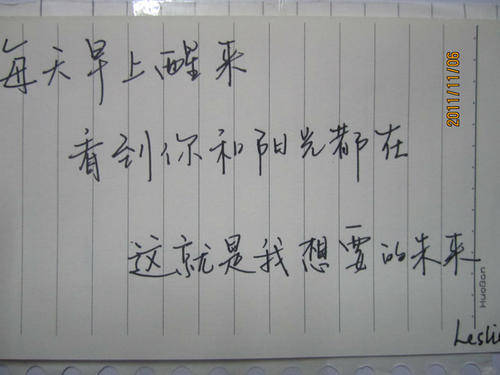 每天早上醒来
看到你和阳光都在
这就是我想要的未来
Leslie
2011/11/06
HuaGan